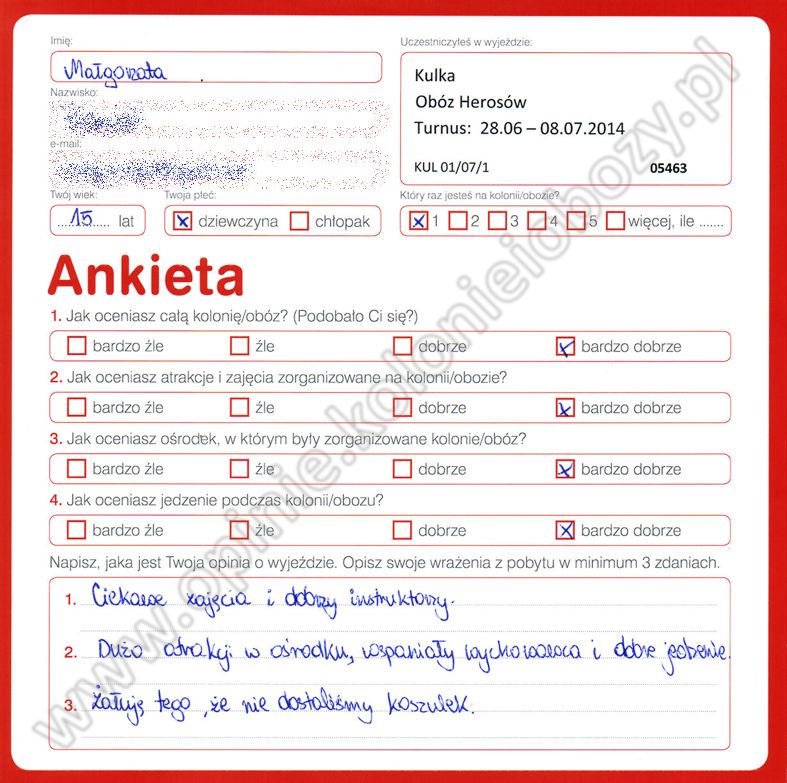 Imię:
Małgorzata
Nazwisko:
e-mail:
Twój wiek:
15 lat
Twoja płeć:
dziewczyna chłopak
Uczestniczyłeś w wyjeździe:
Kulka
Obóz Herosów
Turnus: 28.06 – 08.07.2014
KUL 01/07/1 05463
Który raz jesteś na kolonii/obozie?
1 2 3 4 5 więcej, ile .......
Ankieta
1. Jak oceniasz całą kolonię/obóz? (Podobało Ci się?)
bardzo źle źle dobrze bardzo dobrze
2. Jak oceniasz atrakcje i zajęcia zorganizowane na kolonii/obozie?
bardzo źle źle dobrze bardzo dobrze
3. Jak oceniasz ośrodek, w którym były zorganizowane kolonie/obóz?
bardzo źle źle dobrze bardzo dobrze
4. Jak oceniasz jedzenie podczas kolonii/obozu?
bardzo źle źle dobrze bardzo dobrze
Napisz, jaka jest Twoja opinia o wyjeździe. Opisz swoje wrażenia z pobytu w minimum 3 zdaniach.
1. Ciekawe zajęcia i dobrzy instruktorzy.
2. Dużo atrakcji w ośrodku, wspaniały wychowawca i dobre jedzenie.
3. Żałuję tego, że nie dostaliśmy koszulek.
www.opinie.kolonieiobozy.pl